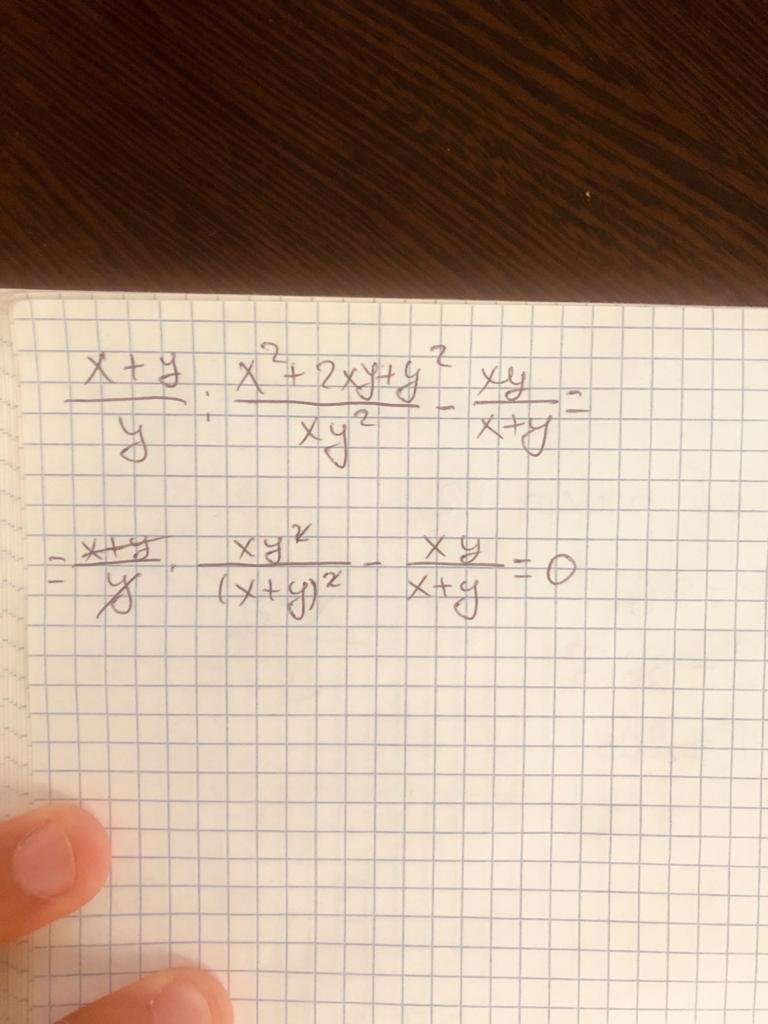 x+y/y : x²+2xy+y²/xy² - xy/x+y =
= x+y/y · xy²/(x+y)² - xy/x+y = 0